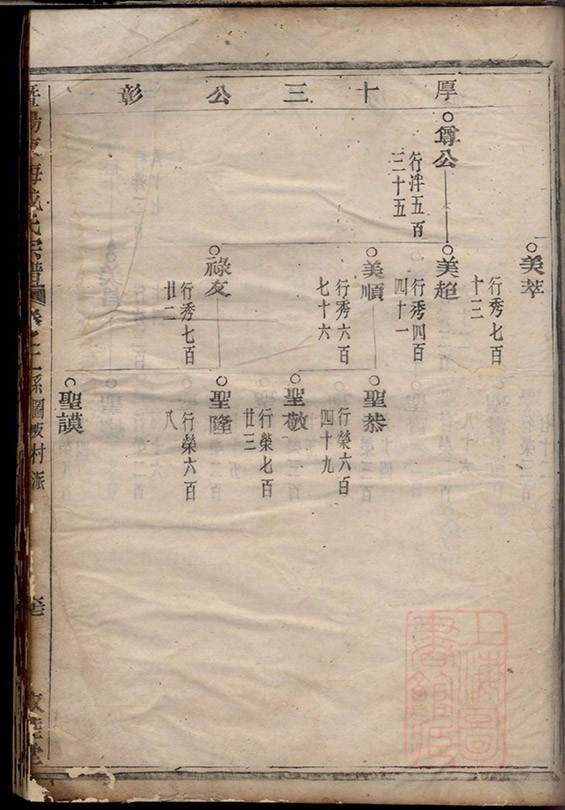 厚十三公彰
尊公
行泮五百
三十五
美萃
行秀七百
十三
美超
行秀四百
四十一
美順
行秀六百
七十六
祿友
行秀七百
廿二
聖恭
行榮六百
四十九
聖敬
行榮七百
廿三
聖隆
行榮六百
八
聖謨
暨陽東海戚氏宗譜
系圖
村派
上海圖書館藏